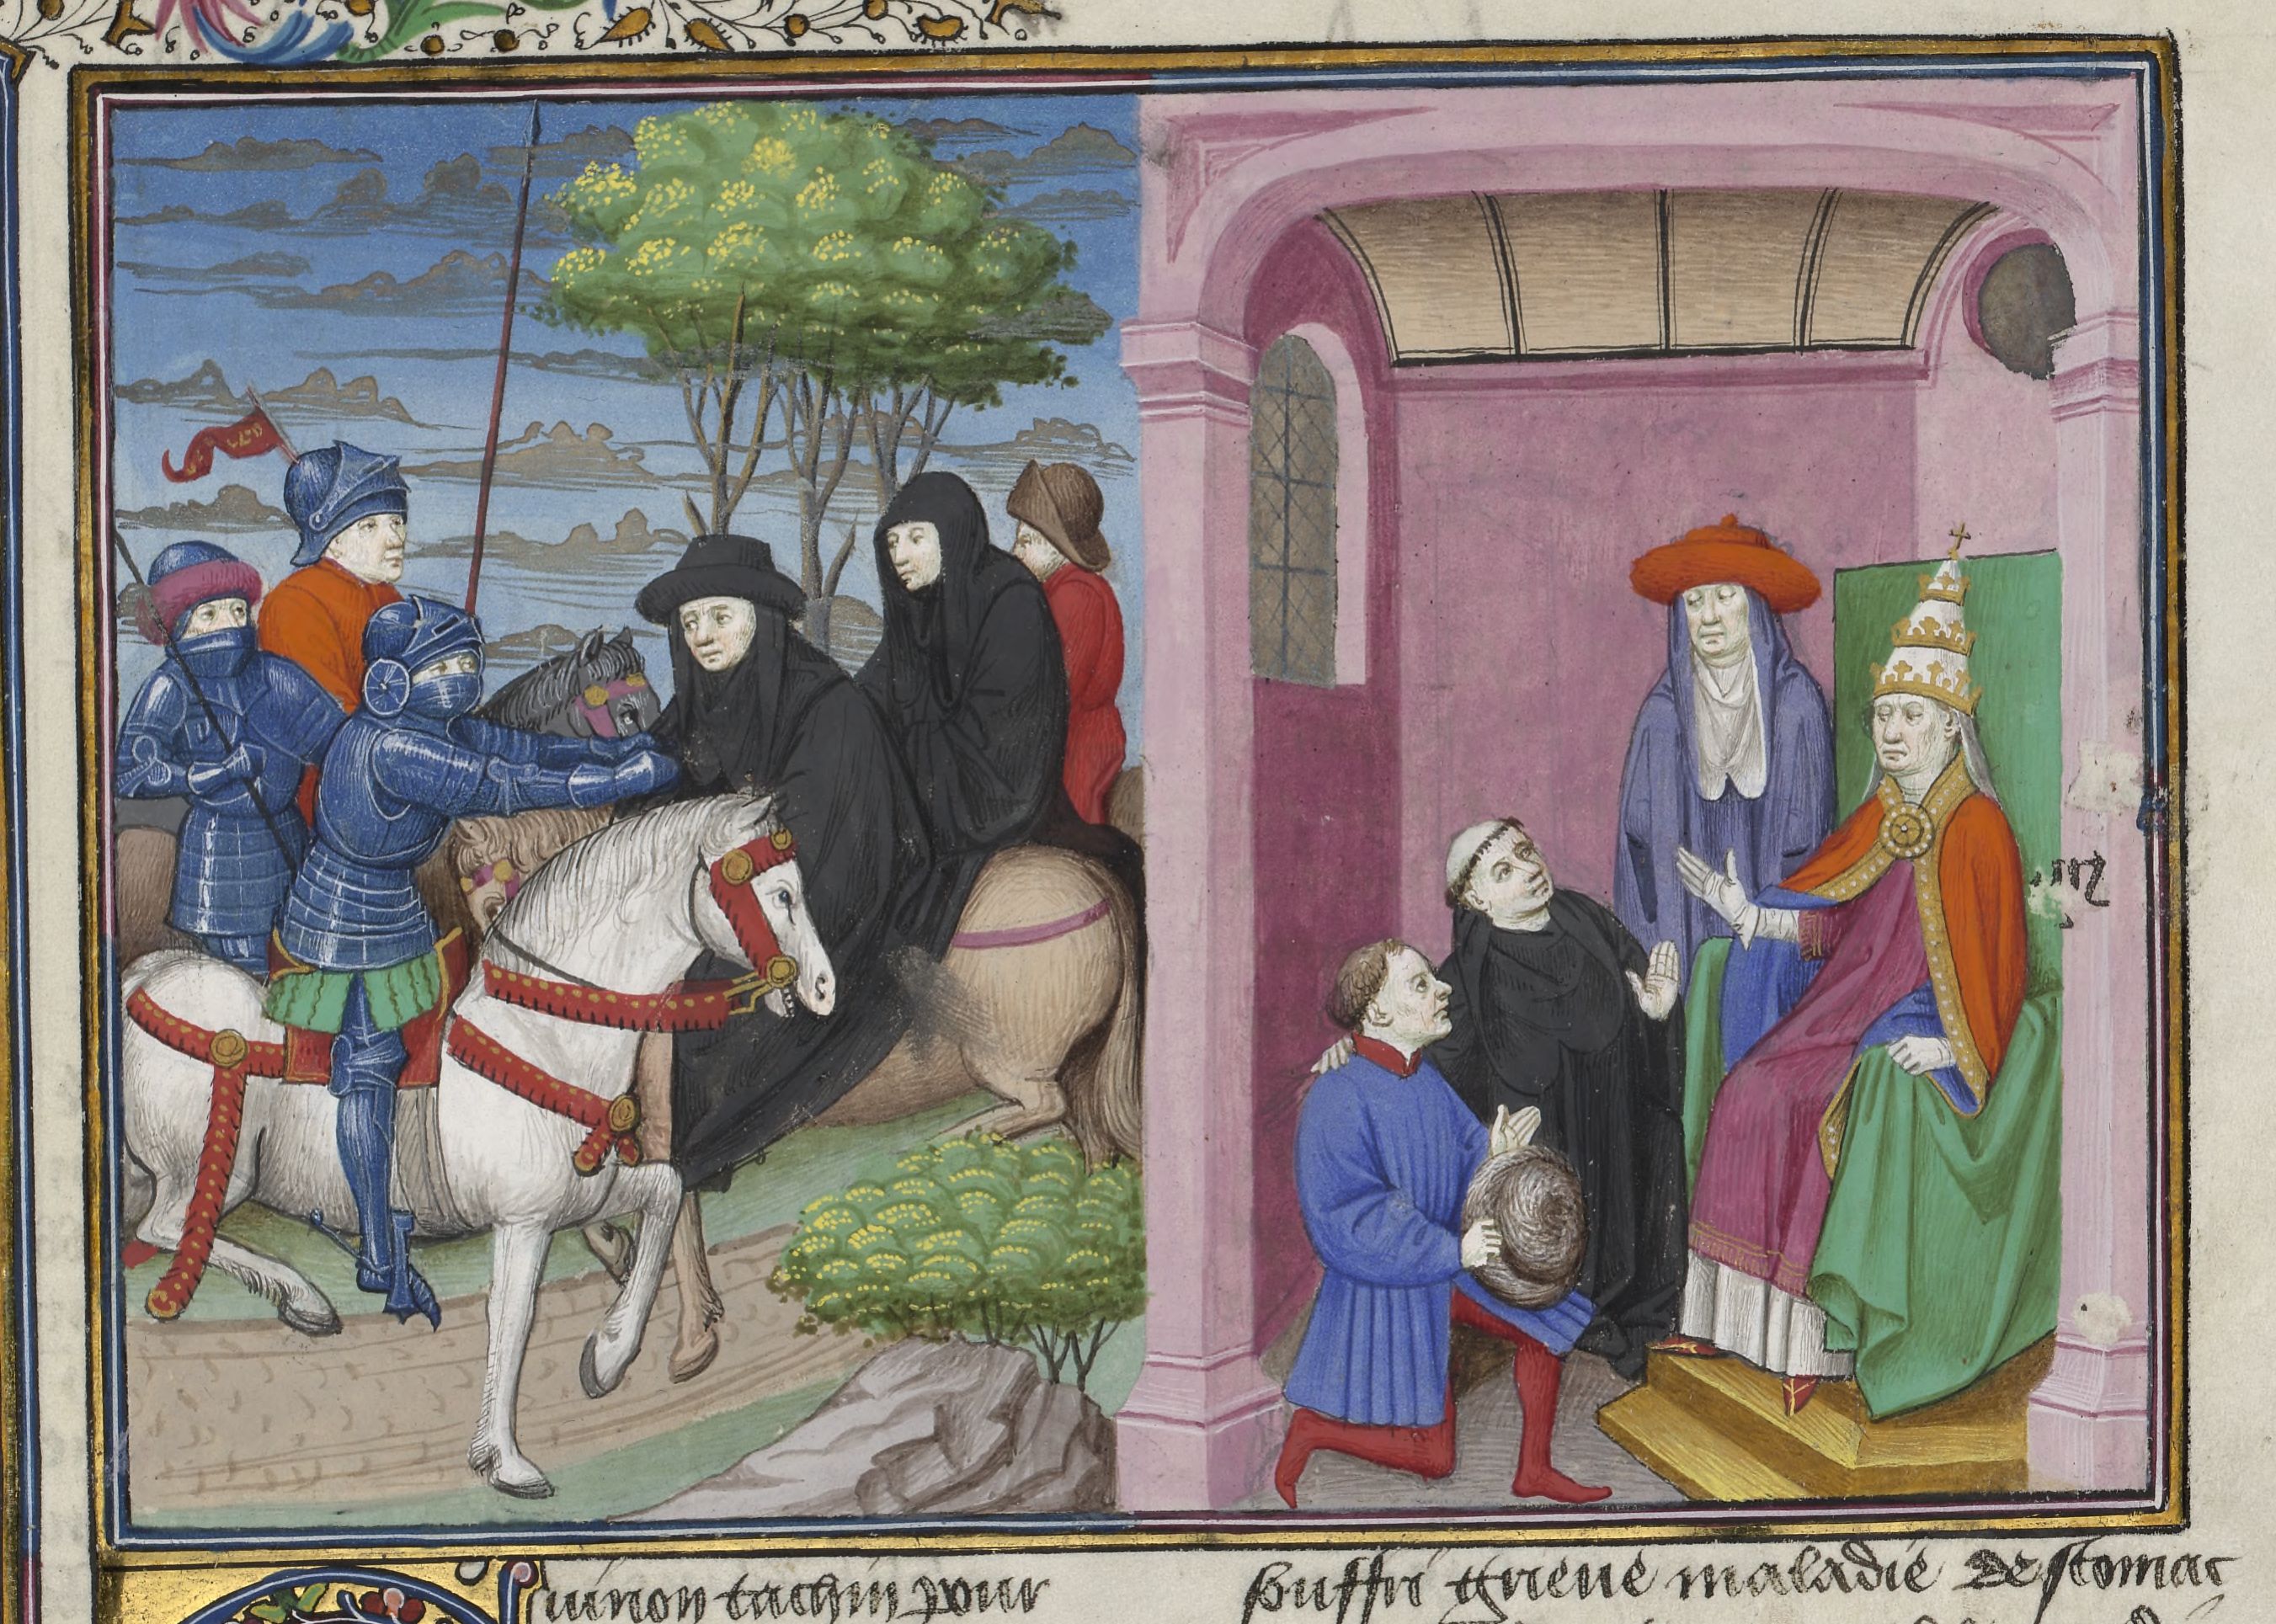 uinon tachin pour
souffri grieue maladie destomac